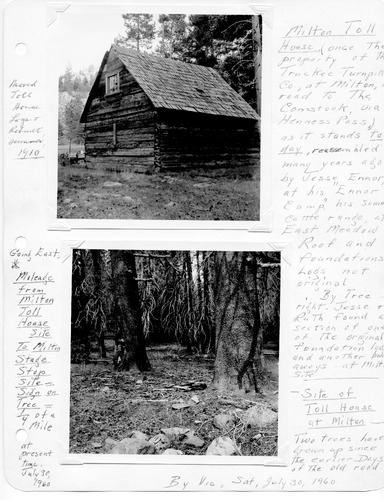 Moved
Toll
House
Logs &
Rebuilt,
Summer,
1910
Milton Toll
House, (once the
property of the
Truckee Turnpike
Co., at Milton, on
road to The
Comstock via
Henness Pass)
as it stands To-
day, reassembled
many years ago
by Jesse Ennor
at his "Ennor
Camp", his summer
Cattle range, at
East Meadow
Roof and
foundations
Logs not
original
. By Tree
right Jesse &
Ruth found a
section of one
of the original
foundation logs
and another but
aways - at Milton
Site
Going East,
Mileage
from
Milton
Toll
House
Site
To Milton
Stage
Stop
Site =
Sign on
Tree =
of a
Mile
at
present
time,
July 30,
1960
Site of
Toll House
at Milton
Two trees have
grown up since
the earlier Days
of the old road
By Vic, Sat, July 30, 1960